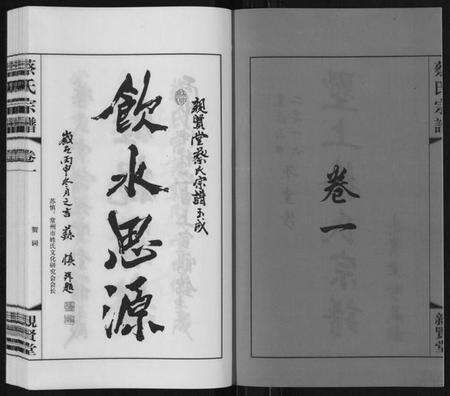 蔡氏宗譜
卷一
親賢堂
親賢堂蔡氏宗譜玉成
飲水思源
歲在丙申冬月之吉 蘇慎 題
苏慎：常州市姓氏文化研究会会长
蔡氏宗譜
卷一
賀詞
親賢堂